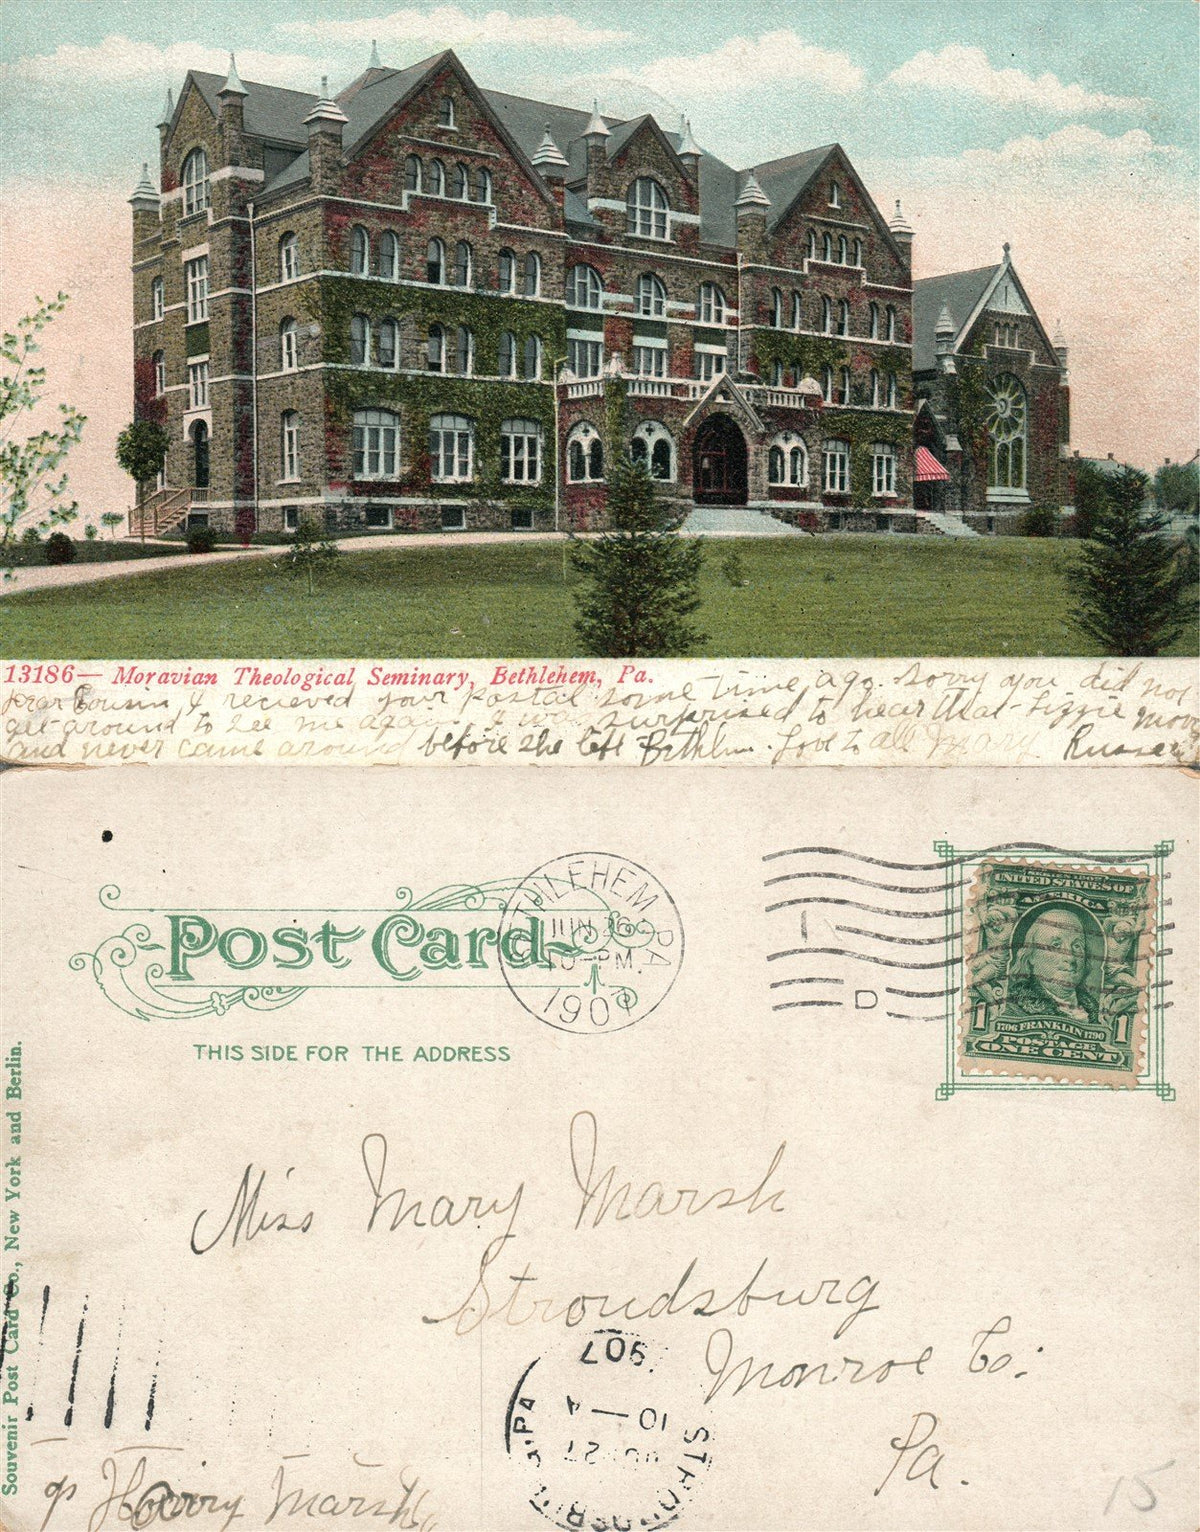 13186— Moravian Theological Seminary, Bethlehem, Pa.
Dear Cousin, I recieved your postal some time ago. Sorry you did not
get around to see me again. I was surprised to hear that Lizzie
and never came around before she left Bethlem. Love to all Mary. Russel
THLEHEM PA
JUN 26
PM.
1907
D
UNITED STATES OF
AMERICA
1 1706 FRANKLIN 1790 1
POSTAGE
ONE CENT
Post Card
THIS SIDE FOR THE ADDRESS
Souvenir Post Card Co., New York and Berlin.
Miss Mary Marsh
Stroudsburg
Monroe Co:
Pa.
907
10 — A
27
PA
Harry Marsh
15